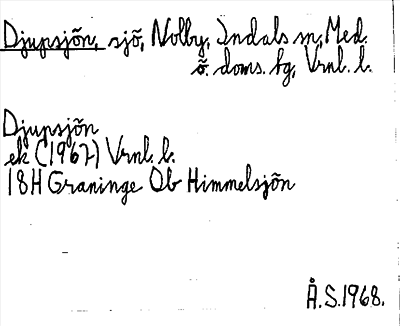 Djupsjön, sjö, Nolby, Indals sn, Med.
ö. doms. fg, Vrnl. l.
Djupsjön
ek (1967) Vrnl. l.
18H Graninge Ob Himmelsjön
Å.S. 1968.